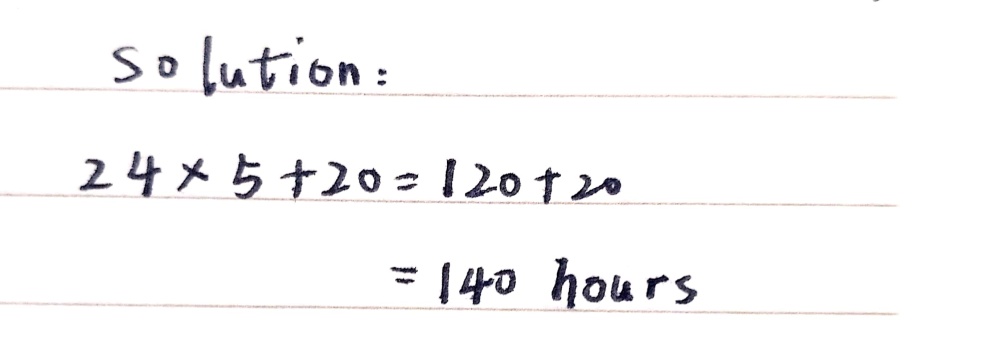 Solution:
24 × 5 + 20 = 120 + 20
= 140 hours